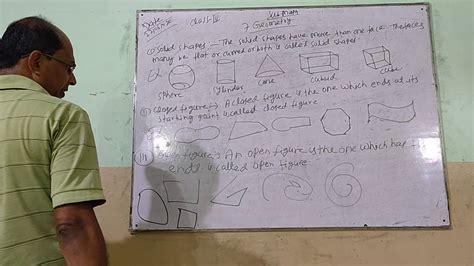 Date
Class-III
7 Geometry
(i) Solid shapes :- The solid shapes have more than one face. The faces
may be flat or curved or both is called solid shapes.
Ex.
sphere
cylinder
cone
cuboid
cube
(ii) Closed figure :- A closed figure is the one which ends at its
starting point is called closed figure
(iii) Open figure :- An open figure is the one which has
ends is called open figure